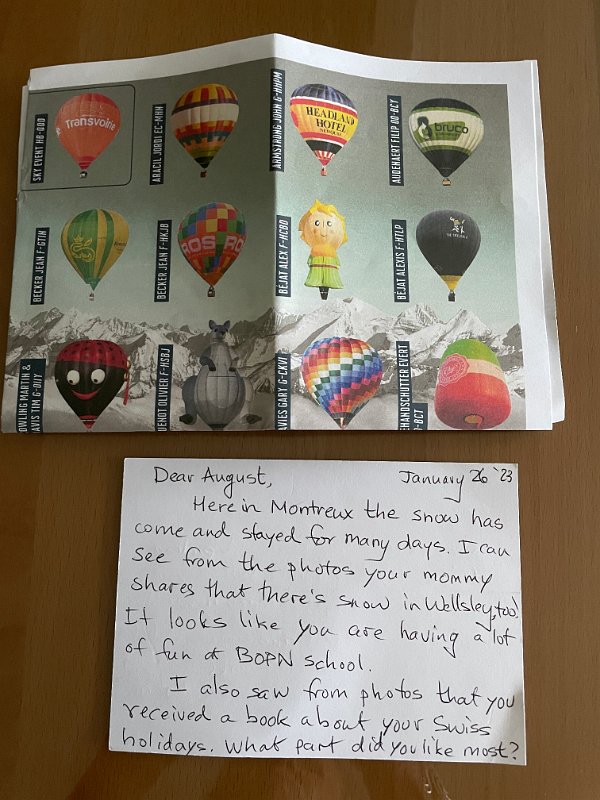 SKY EVENT HB-QQD
Transvoirie
ARACIL JORDI EC-MHN
ARMSTRONG JOHN G-HHPM
HEADLAND
HOTEL
AUDENAERT FILIP OO-BCY
bruco
BECKER JEAN F-GTIN
BECKER JEAN F-HKJB
ROS
BÉJAT ALEX F-HCBD
BÉJAT ALEXIS F-HTLP
OWLING MARTIN &
AVIS TIM G-OIJY
UENOT OLIVIER F-HSBJ
AVIES GARY G-CKVI
EHANDSCHUTTER EVERT
O-BCT
Dear August, January 26 '23
Here in Montreux the snow has
come and stayed for many days. I can
see from the photos your mommy
shares that there's snow in Wellsley, too!
It looks like you are having a lot
of fun at BOPN school.
I also saw from photos that you
received a book about your Swiss
holidays. What part did you like most?